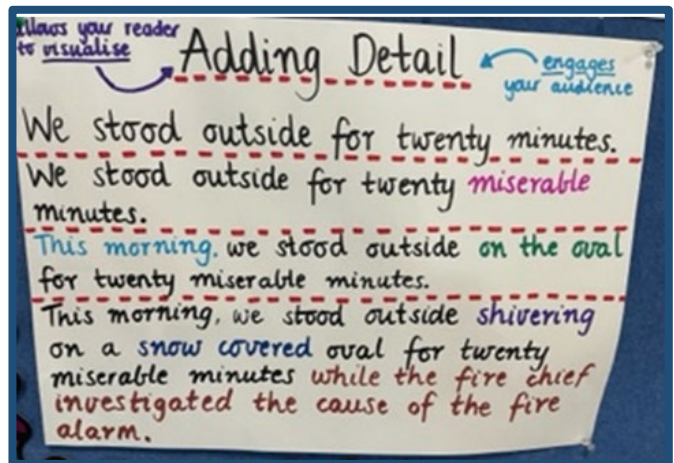 allows your reader
to visualise
Adding Detail
engages
your audience
We stood outside for twenty minutes.
We stood outside for twenty miserable
minutes.
This morning, we stood outside on the oval
for twenty miserable minutes.
This morning, we stood outside shivering
on a snow covered oval for twenty
miserable minutes while the fire chief
investigated the cause of the fire
alarm.